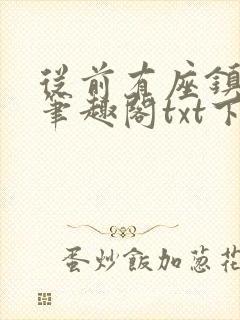 從前有座鎮
筆趣閣txt下
蛋炒飯加蔥花